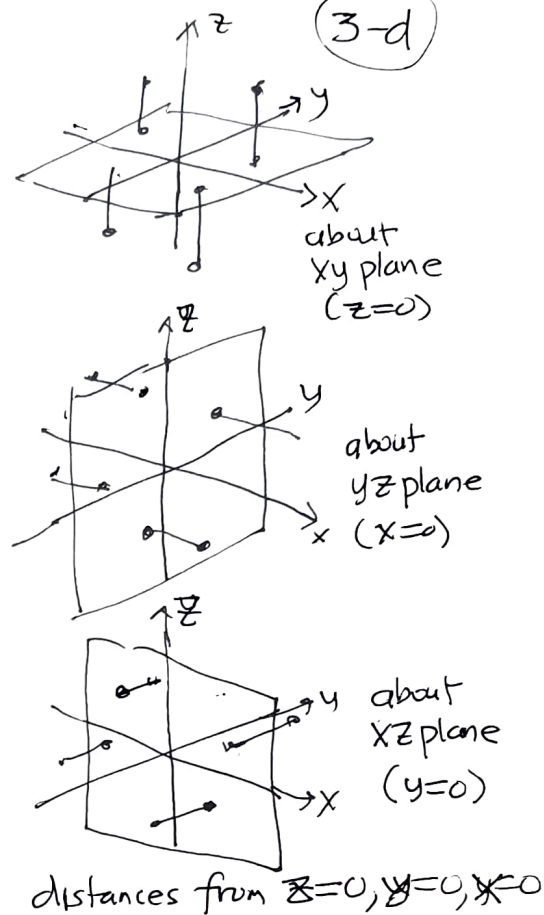 3-d
z
y
x
about
xy plane
(z=0)
z
y
x
about
yz plane
(x=0)
z
y
x
about
xz plane
(y=0)
distances from z=0, y=0, x=0